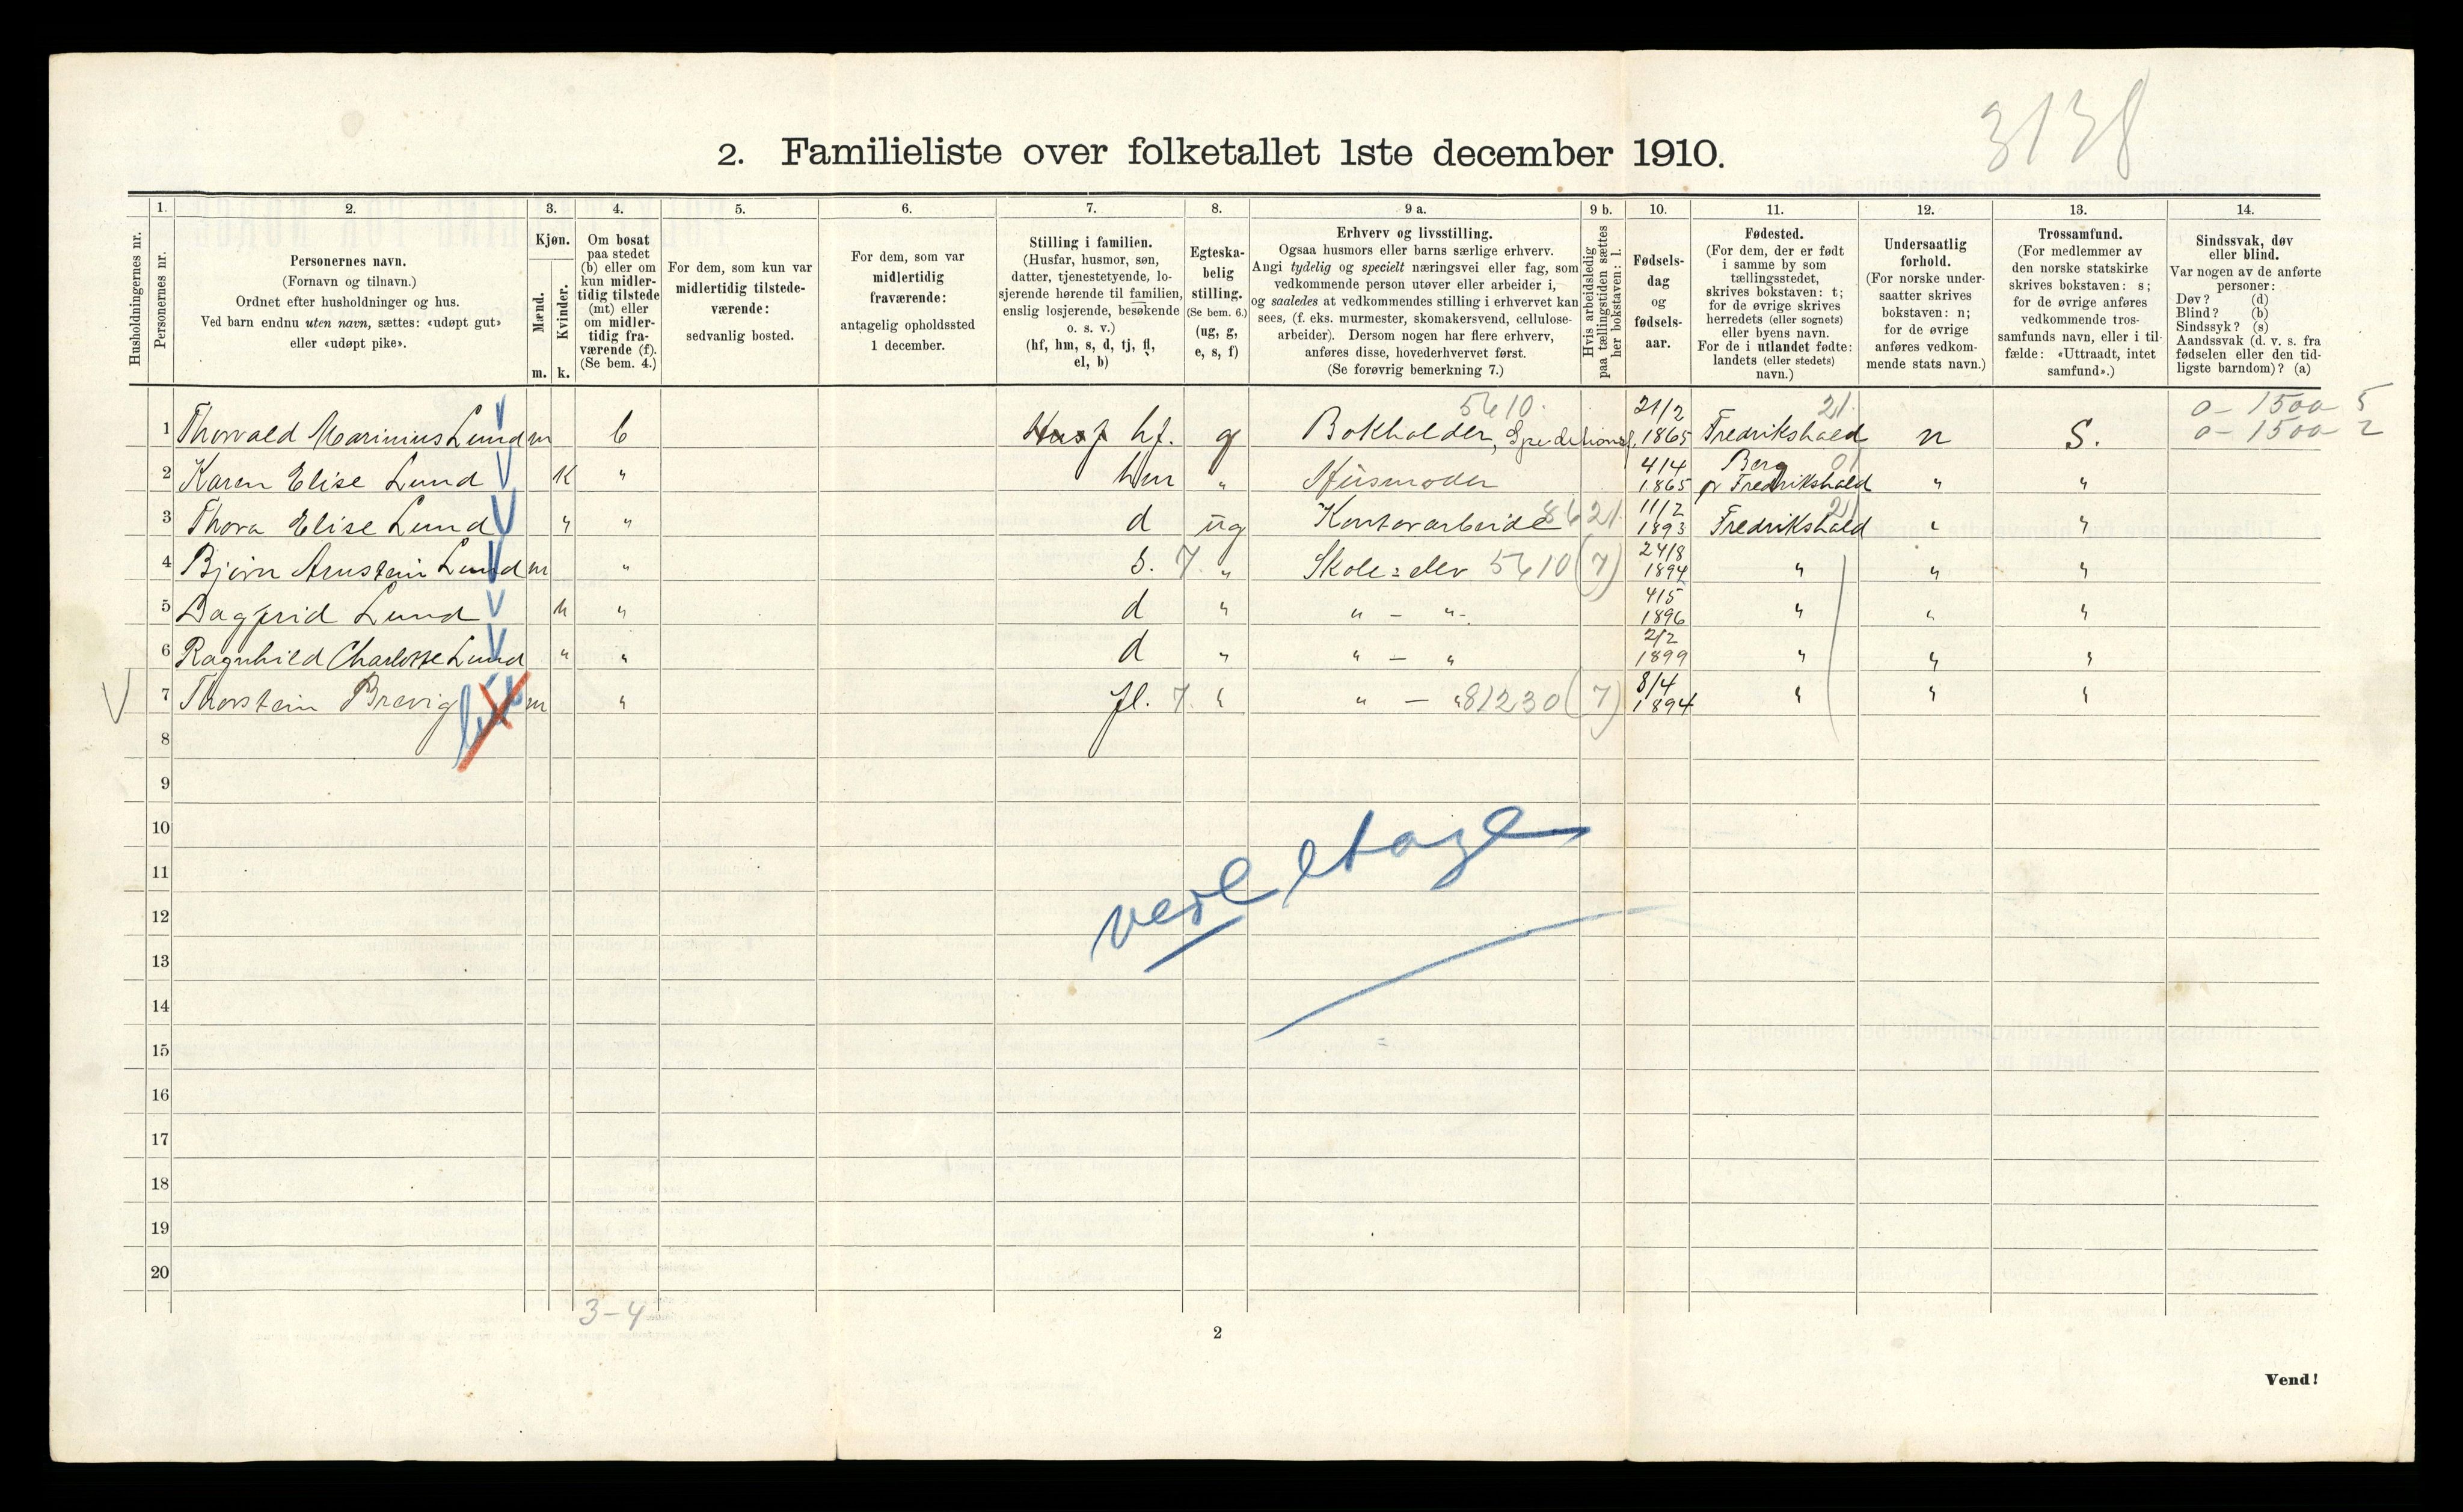 3138
2. Familieliste over folketallet 1ste december 1910.
Husholdningernes nr.
1.
Personernes nr.
2.
Personernes navn.
(Fornavn og tilnavn.)
Ordnet efter husholdninger og hus.
Ved barn endnu uten navn, sættes: «udøpt gut»
eller «udøpt pike».
3.
Kjøn.
Mænd.
Kvinder.
m.
k.
4.
Om bosat
paa stedet
(b) eller om
kun midler-
tidig tilstede
(mt) eller
om midler-
tidig fra-
værende (f).
(Se bem. 4.)
5.
For dem, som kun var
midlertidig tilstede-
værende:
sedvanlig bosted.
6.
For dem, som var
midlertidig
fraværende:
antagelig opholdssted
1 december.
7.
Stilling i familien.
(Husfar, husmor, søn,
datter, tjenestetyende, lo-
sjerende hørende til familien,
enslig losjerende, besøkende
o. s. v.)
(hf, hm, s, d, tj, fl,
el, b)
8.
Egteska-
belig
stilling.
(Se bem. 6.)
(ug, g,
e, s, f)
9 a.
Erhverv og livsstilling.
Ogsaa husmors eller barns særlige erhverv.
Angi tydelig og specielt næringsvei eller fag, som
vedkommende person utøver eller arbeider i,
og saaledes at vedkommendes stilling i erhvervet kan
sees, (f. eks. murmester, skomakersvend, cellulose-
arbeider). Dersom nogen har flere erhverv,
anføres disse, hovederhvervet først.
(Se forøvrig bemerkning 7.)
9 b.
Hvis arbeidsledig
paa tællingstiden sættes
her bokstaven: l.
10.
Fødsels-
dag
og
fødsels-
aar.
11.
Fødested.
(For dem, der er født
i samme by som
tællingsstedet,
skrives bokstaven: t;
for de øvrige skrives
herredets (eller sognets)
eller byens navn.
For de i utlandet fødte:
landets (eller stedets)
navn.)
12.
Undersaatlig
forhold.
(For norske under-
saatter skrives
bokstaven: n;
for de øvrige
anføres vedkom-
mende stats navn.)
13.
Trossamfund.
(For medlemmer av
den norske statskirke
skrives bokstaven: s;
for de øvrige anføres
vedkommende tros-
samfunds navn, eller i til-
fælde: «Uttraadt, intet
samfund».)
14.
Sindssvak, døv
eller blind.
Var nogen av de anførte
personer:
Døv? (d)
Blind? (b)
Sindssyk? (s)
Aandssvak (d. v. s. fra
fødselen eller den tid-
ligste barndom)? (a)
5610. 21/2 21. 0-1500 5
1 Thorvald Marinius Lund m b Husf hf. g Bokholder, Speditionsf. 1865 Fredrikshald n S. 0-1500 2
4/4 Berg 01
2 Karen Elise Lund K " hm " Husmoder 1865 pr Fredrikshald " "
11/2 21
3 Thora Elise Lund " " d ug Kontorarbeide 8621. 1893 Fredrikshald " "
24/8
4 Bjørn Arnstein Lund m " s. 7. " Skole=elev 5610 (7) 1894 " " "
4/5
5 Dagfrid Lund k " d " " - " 1896 " " "
2/2
6 Ragnhild Charlotte Lund " " d " " - " 1899 " " "
8/4
7 Thorstein Brevig m " fl. 7. " " - " 81230 (7) 1894 " " "
8
9
10
11
12
13
14
15
16
17
18
19
20
etage
3-4
2
Vend!